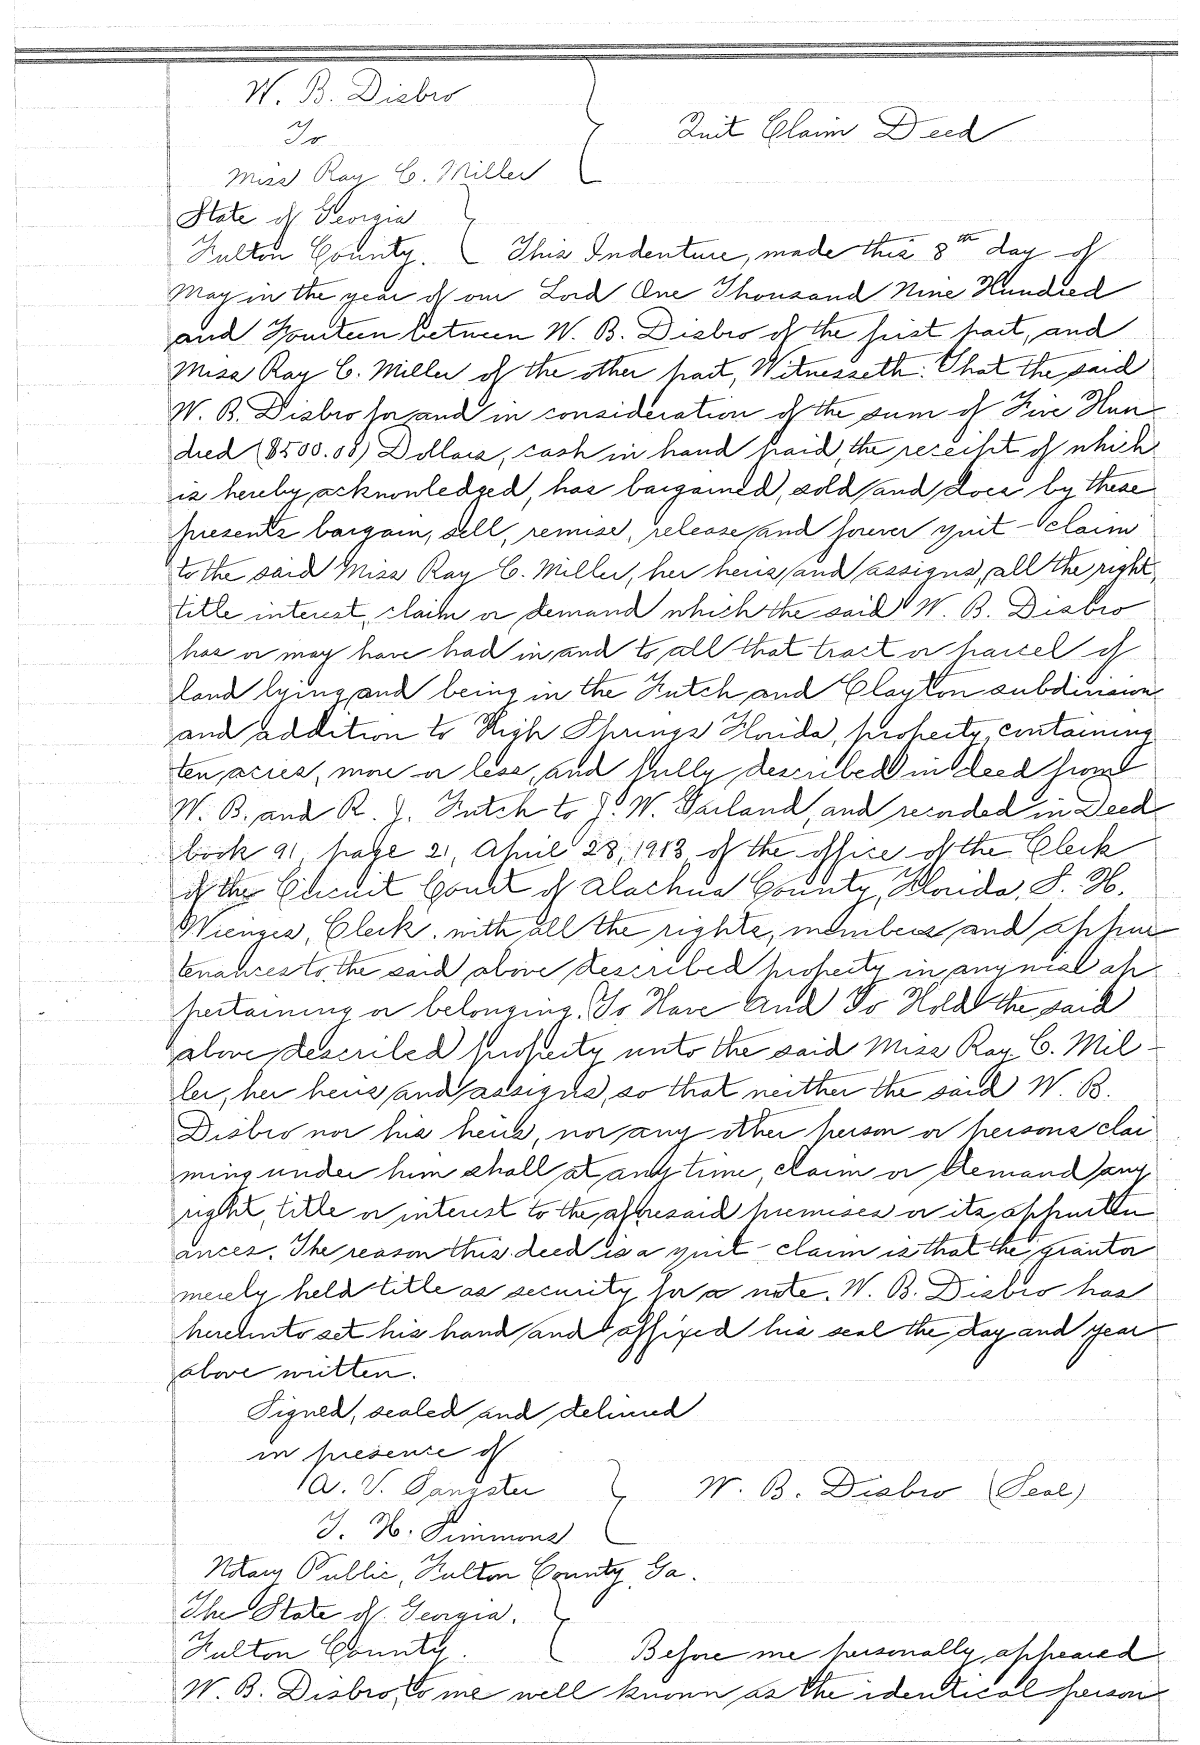 W. B. Disbro
To
Miss Ray C. Miller
Quit Claim Deed
State of Georgia
Fulton County. This Indenture, made this 8th day of
May in the year of our Lord One Thousand Nine Hundred
and Fourteen between W. B. Disbro of the first part, and
Miss Ray C. Miller of the other part, Witnesseth: That the said
W. B. Disbro for and in consideration of the sum of Five Hun
dred ($500.00) Dollars, cash in hand paid, the receipt of which
is hereby acknowledged, has bargained, sold and does by these
presents bargain, sell, remise, release and forever quit-claim
to the said Miss Ray C. Miller, her heirs and assigns, all the right,
title interest, claim or demand which the said W. B. Disbro
has or may have had in and to all that tract or parcel of
land lying and being in the Futch and Clayton subdivision
and addition to High Springs Florida, property containing
ten acres, more or less, and fully described in deed from
W. B. and R. J. Futch to J. W. Garland and recorded in Deed
book 91, page 21, April 28, 1913 of the office of the Clerk
of the Circuit Court of Alachua County, Florida, S. H.
Wienges, Clerk. with all the rights, members and appur
tenances to the said above described property in anywise ap
pertaining or belonging. To Have And To Hold the said
above described property unto the said Miss Ray C. Mil-
ler, her heirs and assigns, so that neither the said W. B.
Disbro nor his heirs, nor any other person or persons clai
ming under him shall at any time, claim or demand any
right, title or interest to the afforesaid premises or its appurten
ances. The reason this deed is a quit-claim is that the grantor
merely held title as security for a note. W. B. Disbro has
hereunto set his hand and affixed his seal the day and year
above written.
Signed, sealed and delivered
in presence of
A. V. Sangster
W. B. Disbro (Seal)
T. H. Simmons
Notary Public, Fulton County, Ga.
The State of Georgia.
Fulton County. Before me personally appeared
W. B. Disbro, to me well known as the identical person